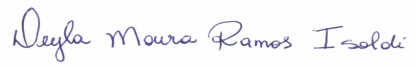 Deyla Moura Ramos Isoldi